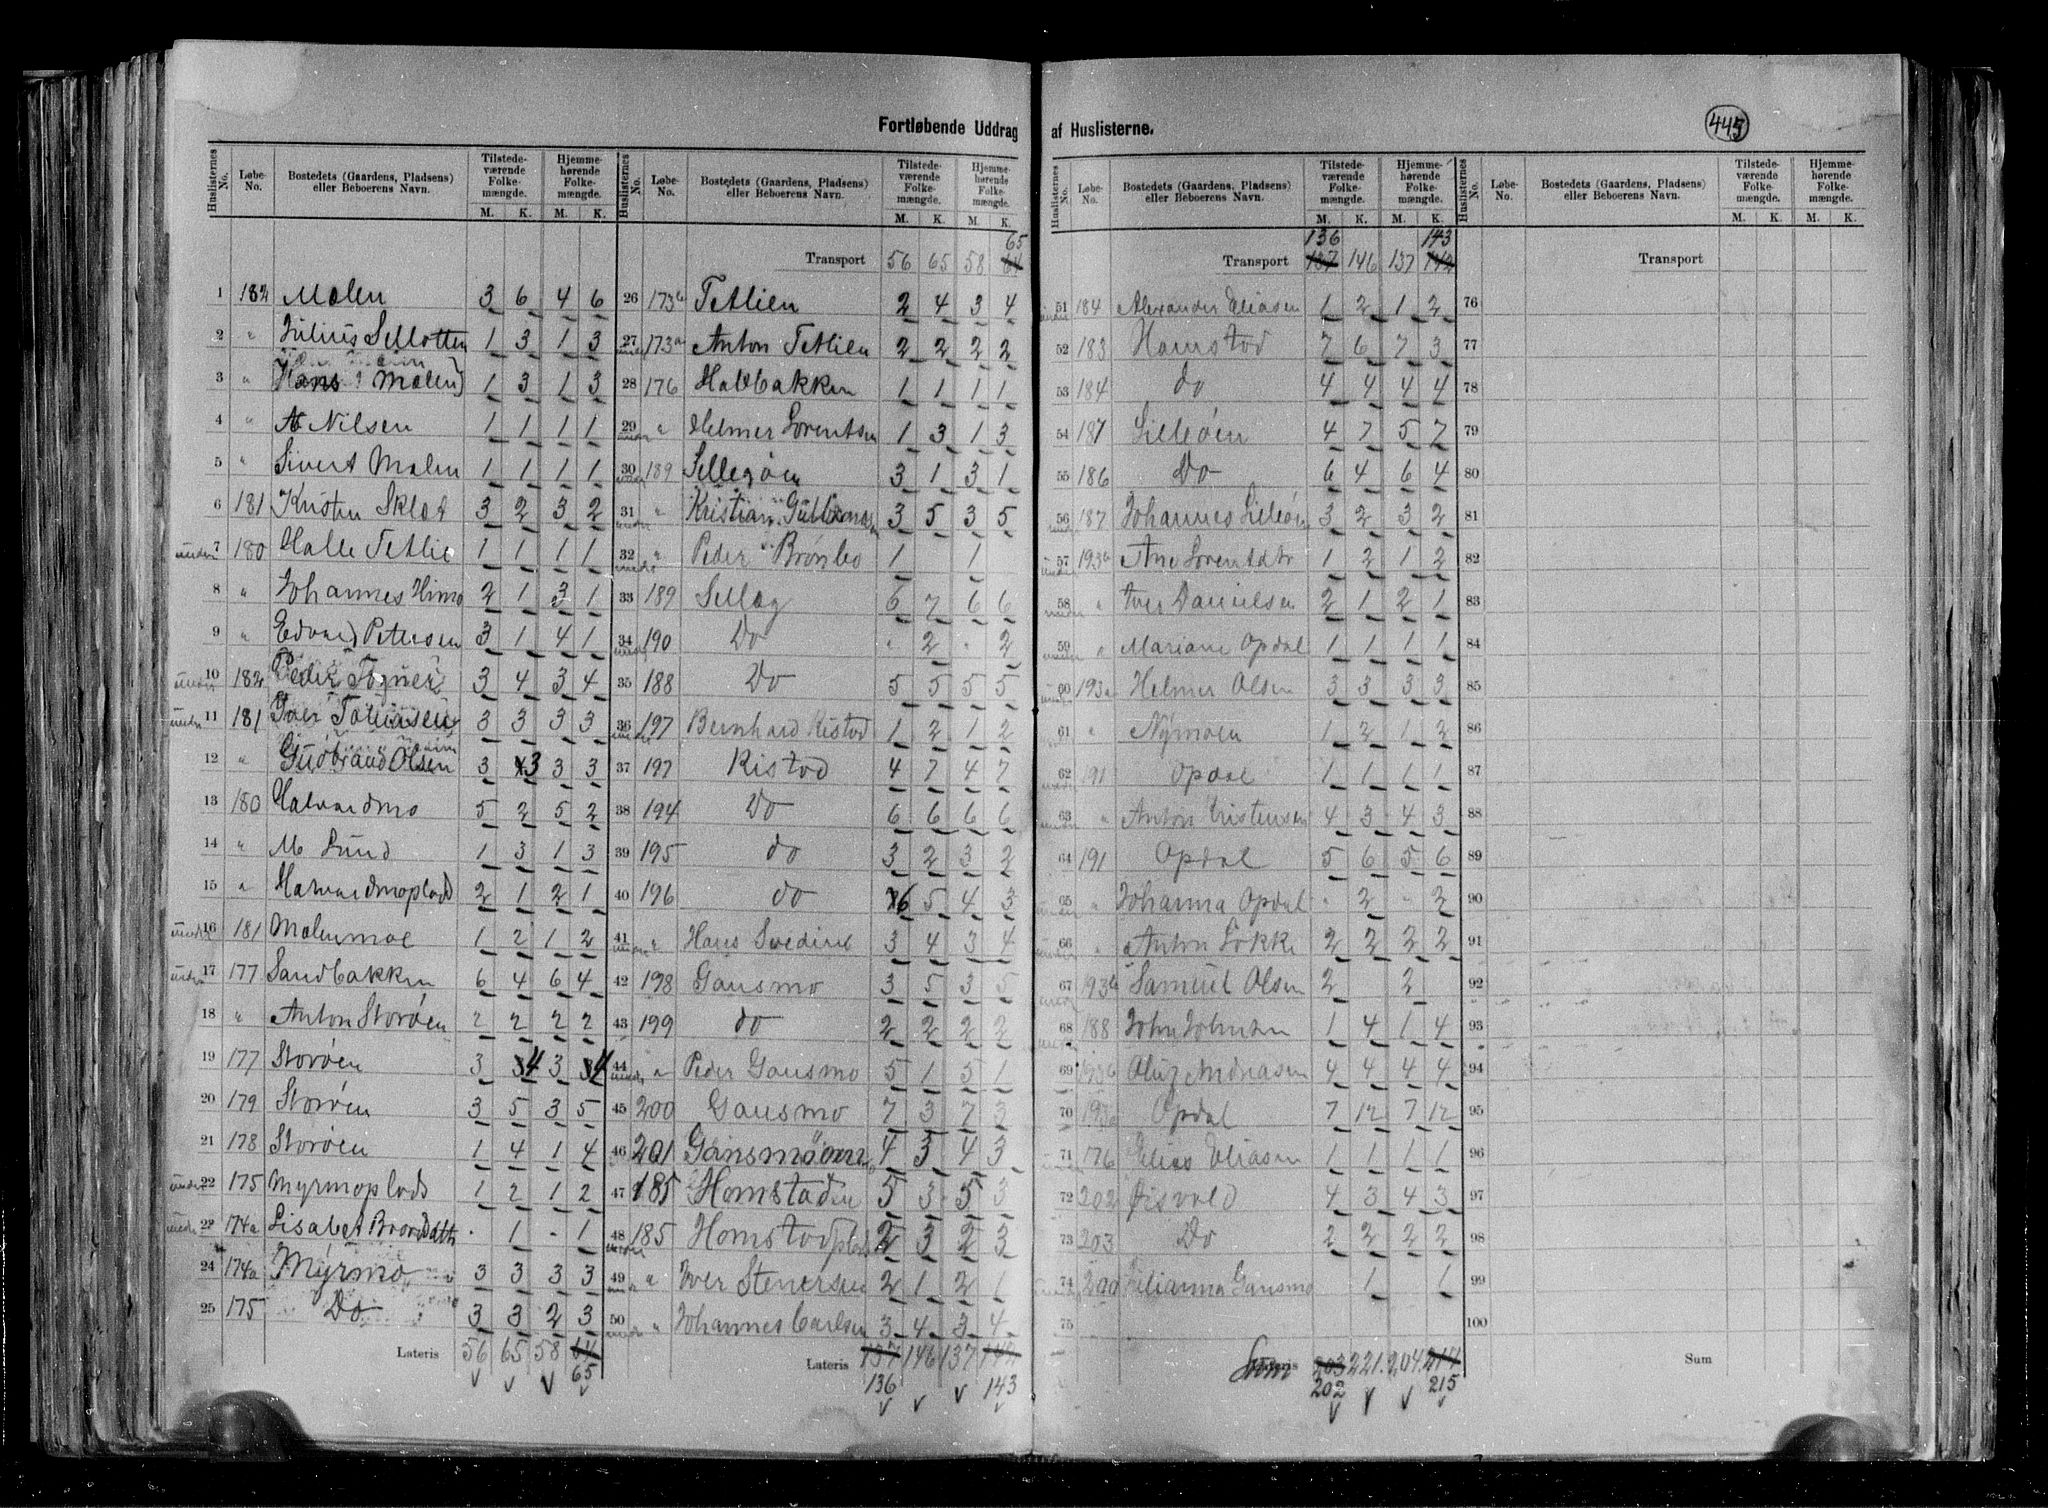 Fortløbende Uddrag af Huslisterne.
445
Huslisternes No. Løbe-No. Bostedets (Gaardens, Pladsens) eller Beboerens Navn. Tilstedeværende Folkemængde. M. K. Hjemmehørende Folkemængde. M. K.
1 182 Mælen 3 6 4 6
2 " Julius Sellotten 1 3 1 3
3 " Hans Mælen 1 3 1 3
4 " A Nilsen 1 1 1 1
5 " Sivert Mælen 1 1 1 1
6 181 Kristen Sklet 3 2 3 2
under 7 180 Halle Tetlie 1 1 1 1
8 " Johannes Himo 2 1 3 1
9 " Edvard Petersen 3 1 4 1
under 10 182 Peder 3 4 3 4
under 11 181 Iver 3 3 3 3
12 " Gudbrand Olsen 3 3 3 3
13 180 Halvardmo 5 2 5 2
14 " M Lund 1 3 1 3
15 " Halvardmoplads 2 1 2 1
under 16 181 Mælenmoe 1 2 1 2
under 17 177 Sandbakken 6 4 6 4
18 " Anton Storøen 2 2 2 2
19 177 Storøen 3 4 3 4
20 179 Storøen 3 5 3 5
21 178 Storøen 1 4 1 4
under 22 175 Myrmoplads 1 2 1 2
under 23 174a Lisabet 1 - 1
24 174a Myrmo 3 3 3 3
25 175 Do 3 3 2 3
Lateris 56 65 58 64 65
Huslisternes No. Løbe-No. Bostedets (Gaardens, Pladsens) eller Beboerens Navn. Tilstedeværende Folkemængde. M. K. Hjemmehørende Folkemængde. M. K.
65
Transport 56 65 58 64
26 173b Tetlien 2 4 3 4
27 under 173a Anton Tetlien 2 2 2 2
28 176 Halbakken 1 1 1 1
29 under " Helmer Lorentsen 1 3 1 3
30 under 189 Sellegøen 3 1 3 1
31 under " Kristian 3 5 3 5
32 under " Peder Brønbo 1 1
33 189 Selleg 6 7 6 6
34 under 190 Do " 2 - 2
35 188 Do 5 5 5 5
36 under 197 Bernhard Ristad 1 2 1 2
37 197 Ristad 4 7 4 7
38 194 Do 6 6 6 6
39 195 do 3 2 3 2
40 196 do 6 5 4 3
41 under " Hans Svedine 3 4 3 4
42 198 Gansmo 3 5 3 5
43 199 do 2 2 2 2
44 under " Peder Gansmo 5 1 5 1
45 200 Gansmo 7 3 7 3
46 201 Gansmo 4 3 4 3
47 185 Homstaden 5 3 5 3
48 under 185 Homstadplads 2 3 2 3
49 under " Iver Stenersen 2 1 2 1
50 under " Johannes Carlsen 3 4 3 4
Lateris 137 146 137 142
136 143
Huslisternes No. Løbe-No. Bostedets (Gaardens, Pladsens) eller Beboerens Navn. Tilstedeværende Folkemængde. M. K. Hjemmehørende Folkemængde. M. K.
136 143
Transport 137 146 137 142
51 under 184 Alexander Eliasen 1 2 1 2
52 183 Homstad 7 6 7 3
53 184 do 4 4 4 4
54 187 Lilleøen 4 7 5 7
55 186 Do 6 4 6 4
56 under 187 Johannes Lilleøen 3 2 3 2
57 under 193a Ane Lorentsdtr 1 2 1 2
58 under " Iver Danielsen 2 1 2 1
59 under " Mariane Opdal 1 1 1 1
60 under 193a Helmer Olsen 3 3 3 3
61 " Nymoen 1 2 1 2
62 under 191 Opdal 1 1 1 1
63 under " Anton Kristensen 4 3 4 3
64 191 Opdal 5 6 5 6
65 under " Johanna Opdal " 2 - 2
66 under " Anton Løkke 2 2 2 2
67 under 193b Samuel Olsen 2 2
68 under 188 John Johnsen 1 4 1 4
69 193b Oluf Andreasen 4 4 4 4
70 193b Opdal 7 12 7 12
71 under 176 Elias Eliasen 1 1 1 1
72 202 Øisvold 4 3 4 3
73 203 Do 2 2 2 2
74 under 200 Gansmo 1 1
75
Sum 203 221 204 214
202 215
Huslisternes No. Løbe-No. Bostedets (Gaardens, Pladsens) eller Beboerens Navn. Tilstedeværende Folkemængde. M. K. Hjemmehørende Folkemængde. M. K.
Transport
76
77
78
79
80
81
82
83
84
85
86
87
88
89
90
91
92
93
94
95
96
97
98
99
100
Sum